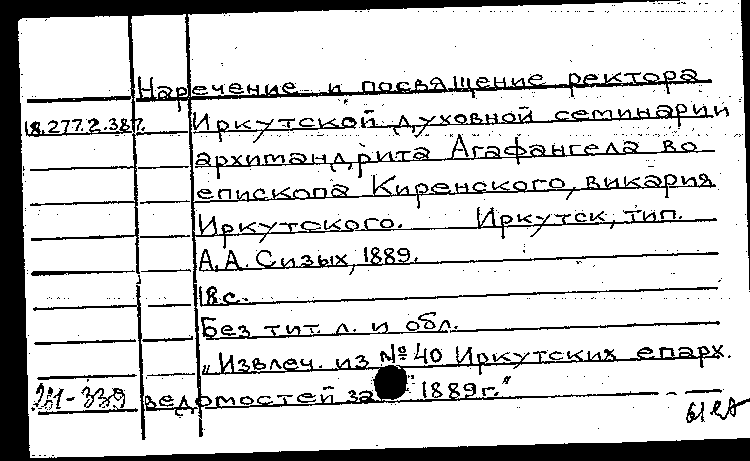 Наречение и посвящение ректора
18.277.2.387. Иркутской духовной семинарии
архимандрита Агафангела во
епископа Киренского, викария
Иркутского. Иркутск, тип.
А.А. Сизых, 1889.
18 с.
Без тит. л. и обл.
„Извлеч. из № 40 Иркутских епарх.
ведомостей за 1889г."